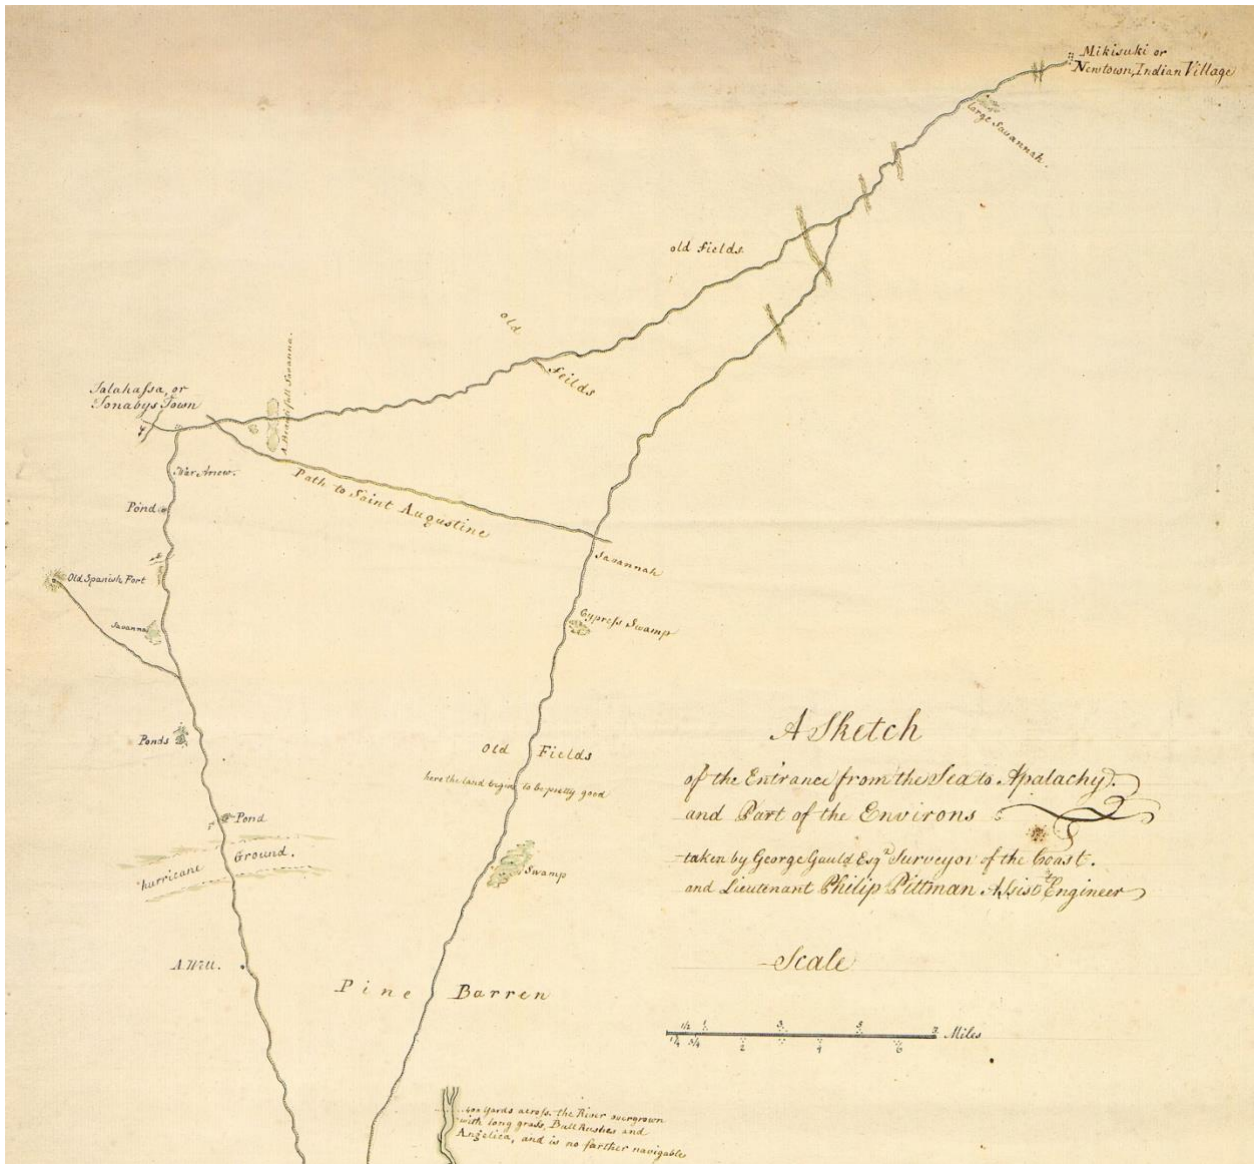 Mikisuki or
Newtown, Indian Village
large Savannah.
old Fields.
Old
Feilds
Talahassa, or
Tonabys Town
A Beautifull Savanna.
Path to Saint Augustine
Pond
Old Spanish Fort
Savannah
Savanna
Cypress Swamp
Ponds
Old Fields
here the land begins to be pretty good
Pond
hurricane Ground.
Swamp
A Well.
Pine Barren
A Sketch
of the Entrance from the Sea to Apalachy.
and Part of the Environs
taken by George Gauld Esqr. Surveyor of the Coast.
and Lieutenant Philip Pittman Assistt. Engineer
Scale
1/2 1 3 5 Miles
1/4 3/4 2 4 6
yards across. the River overgrown
with long grass, Bull Rushes and
Angelica, and is no farther navigable